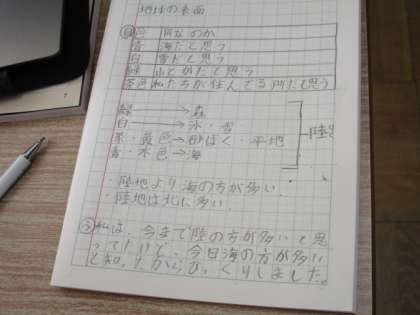 地球の表面
色 何なのか
青 海だと思う
白 雪だと思う
緑 山とかだと思う
茶色 私たちが住んでる所だと思う
緑 → 森
白 → 氷・雪
茶・黄色→砂ばく・平地
青・水色→海
陸
・陸地より海の方が多い
・陸地は北に多い
私は、今まで陸の方が多いと思
ってたけど、今日海の方が多い
と知ったからびっくりしました。